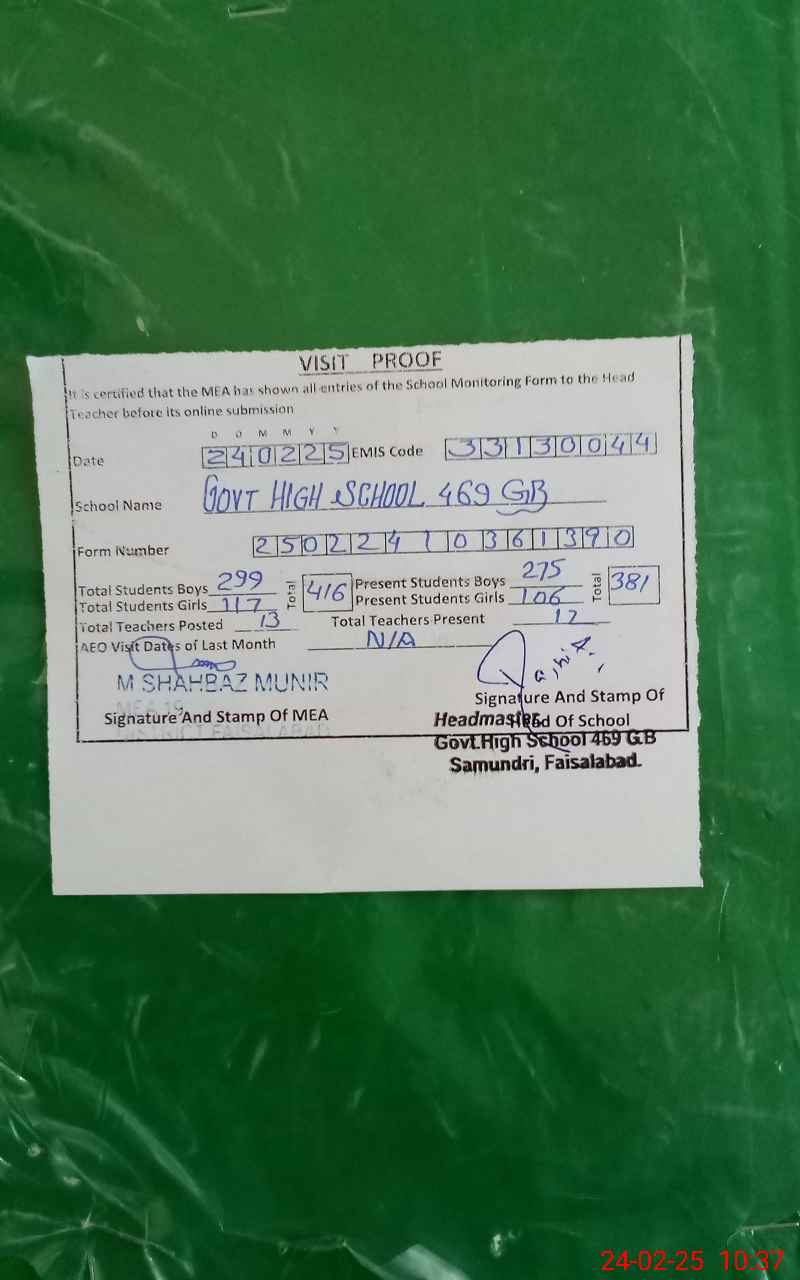 VISIT PROOF
It is certified that the MEA has shown all entries of the School Monitoring Form to the Head
Teacher before its online submission
D D M M Y Y
Date 240225 EMIS Code 33130044
School Name GOVT HIGH SCHOOL 469 GB
Form Number 25022410361390
Total Students Boys 299 Total 416 Present Students Boys 275 Total 381
Total Students Girls 117 Present Students Girls 106
Total Teachers Posted 13 Total Teachers Present 12
AEO Visit Dates of Last Month N/A
M SHAHBAZ MUNIR
Signature And Stamp Of MEA
DISTRICT FAISALABAD
Signature And Stamp Of
Head Of School
Headmaster
Govt.High School 469 G.B
Samundri, Faisalabad.
24-02-25 10:37